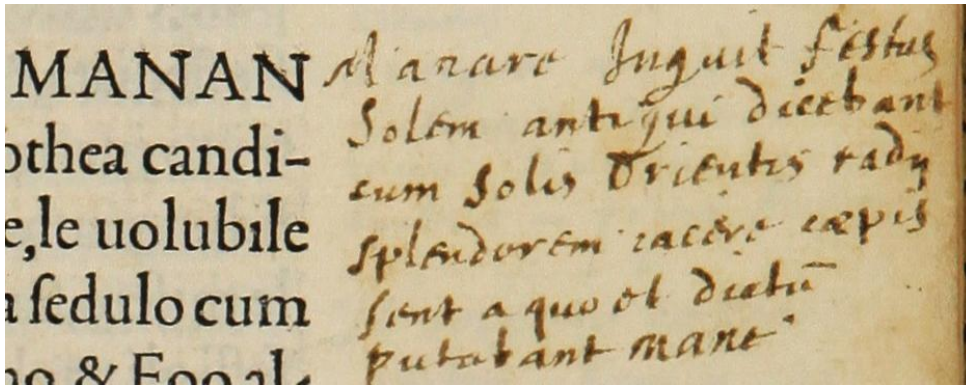 MANAN
othea candi-
e,le uolubile
a ſedulo cum
no & Eoo al-
Manare Inquit festus
Solem antiqui dicebant
cum Solis Orientis radij
splendorem iacere cœpis
sent a quo et dictū
putabant mane